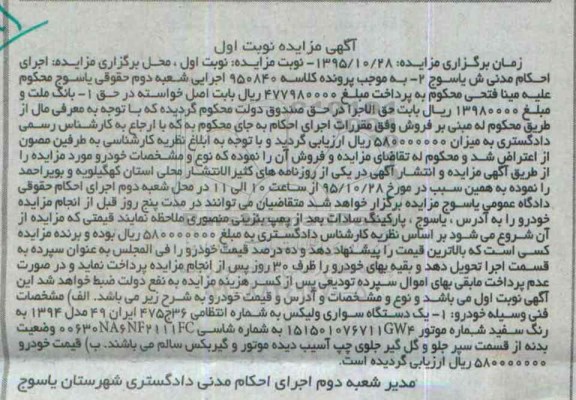 آگهی مزایده نوبت اول
زمان برگزاری مزایده: ۱۳۹۵/۱۰/۲۸- نوبت مزایده: نوبت اول ، محل برگزاری مزایده: اجرای
احکام مدنی ش یاسوج ۲- به موجب پرونده کلاسه ۹۵۰۸۴۰ اجرایی شعبه دوم حقوقی یاسوج محکوم
علیه مینا فتحی محکوم به پرداخت مبلغ ۴۷۷۹۸۰۰۰۰ ریال بابت اصل خواسته در حق ۱- بانک ملت و
مبلغ ۱۳۹۸۰۰۰۰ ریال بابت حق الاجرا در حق صندوق دولت محکوم گردیده که با توجه به معرفی مال از
طریق محکوم له مبنی بر فروش وفق مقررات اجرای احکام به جای محکوم به که با ارجاع به کارشناس رسمی
دادگستری به میزان ۵۸۰۰۰۰۰۰۰ ریال ارزیابی گردید و با توجه به ابلاغ نظریه کارشناسی به طرفین مصون
از اعتراض شد و محکوم له تقاضای مزایده و فروش آن را نموده که نوع و مشخصات خودرو مورد مزایده را
از طریق آگهی مزایده و انتشار آگهی در یکی از روزنامه های کثیرالانتشار محلی استان کهگیلویه و بویراحمد
را نموده به همین سبب در مورخ ۹۵/۱۰/۲۸ از ساعت ۱۰ الی ۱۱ در محل شعبه دوم اجرای احکام حقوقی
دادگاه عمومی یاسوج مزایده برگزار خواهد شد متقاضیان می توانند در مدت پنج روز قبل از انجام مزایده
خودرو را به آدرس ، یاسوج ، پارکینگ سادات بعد از پمپ بنزینی منصوری ملاحظه نمایند قیمتی که مزایده از
آن شروع می شود بر اساس نظریه کارشناس دادگستری به مبلغ ۵۸۰۰۰۰۰۰۰ ریال بوده و برنده مزایده
کسی است که بالاترین قیمت را پیشنهاد دهد و ده درصد قیمت خودرو را فی المجلس به عنوان سپرده به
قسمت اجرا تحویل دهد و بقیه بهای خودرو را ظرف ۳۰ روز پس از انجام مزایده پرداخت نماید و در صورت
عدم پرداخت مابقی بهای اموال سپرده تودیعی پس از کسر هزینه مزایده به نفع دولت ضبط خواهد شد این
آگهی نوبت اول می باشد و نوع و مشخصات و آدرس و قیمت خودرو به شرح زیر می باشد. الف) مشخصات
فنی وسیله خودرو: ۱- یک دستگاه سواری ولیکس به شماره انتظامی ۳۶ج۴۷۵ ایران ۴۹ مدل ۱۳۹۴ به
رنگ سفید شماره موتور ۱۵۱۵۰۱۰۷۶۷۱۱GW۴ به شماره شاسی ۰۰۶۳۰NA۶NF۲۱۱۱FC وضعیت
بدنه از قسمت سپر جلو و گل گیر جلوی چپ آسیب دیده موتور و گیربکس سالم می باشند. ب) قیمت خودرو
۵۸۰۰۰۰۰۰۰ ریال ارزیابی گردیده است.
مدیر شعبه دوم اجرای احکام مدنی دادگستری شهرستان یاسوج